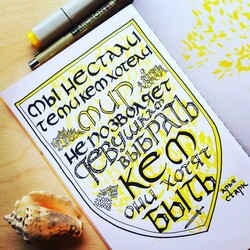 МЫ НЕ СТАЛИ
ТЕМИ КЕМ ХОТЕЛИ
МИР
НЕ ПОЗВОЛЯЕТ
ДЕВУШКАМ
ВЫБРАТЬ
КЕМ
ОНИ ХОТЯТ
БЫТЬ
арья
старк